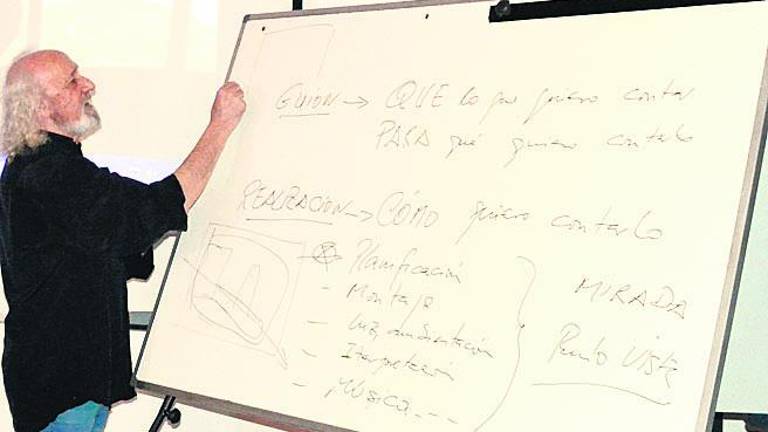 GUION → QUE lo que quiero contar
PARA qué quiero contarlo
REALIZACION → CÓMO quiero contarlo
Planificación
- Montaje
- Luz, ambientación
- Iterpretación
- Música - - -
MIRADA
Punto VISTA